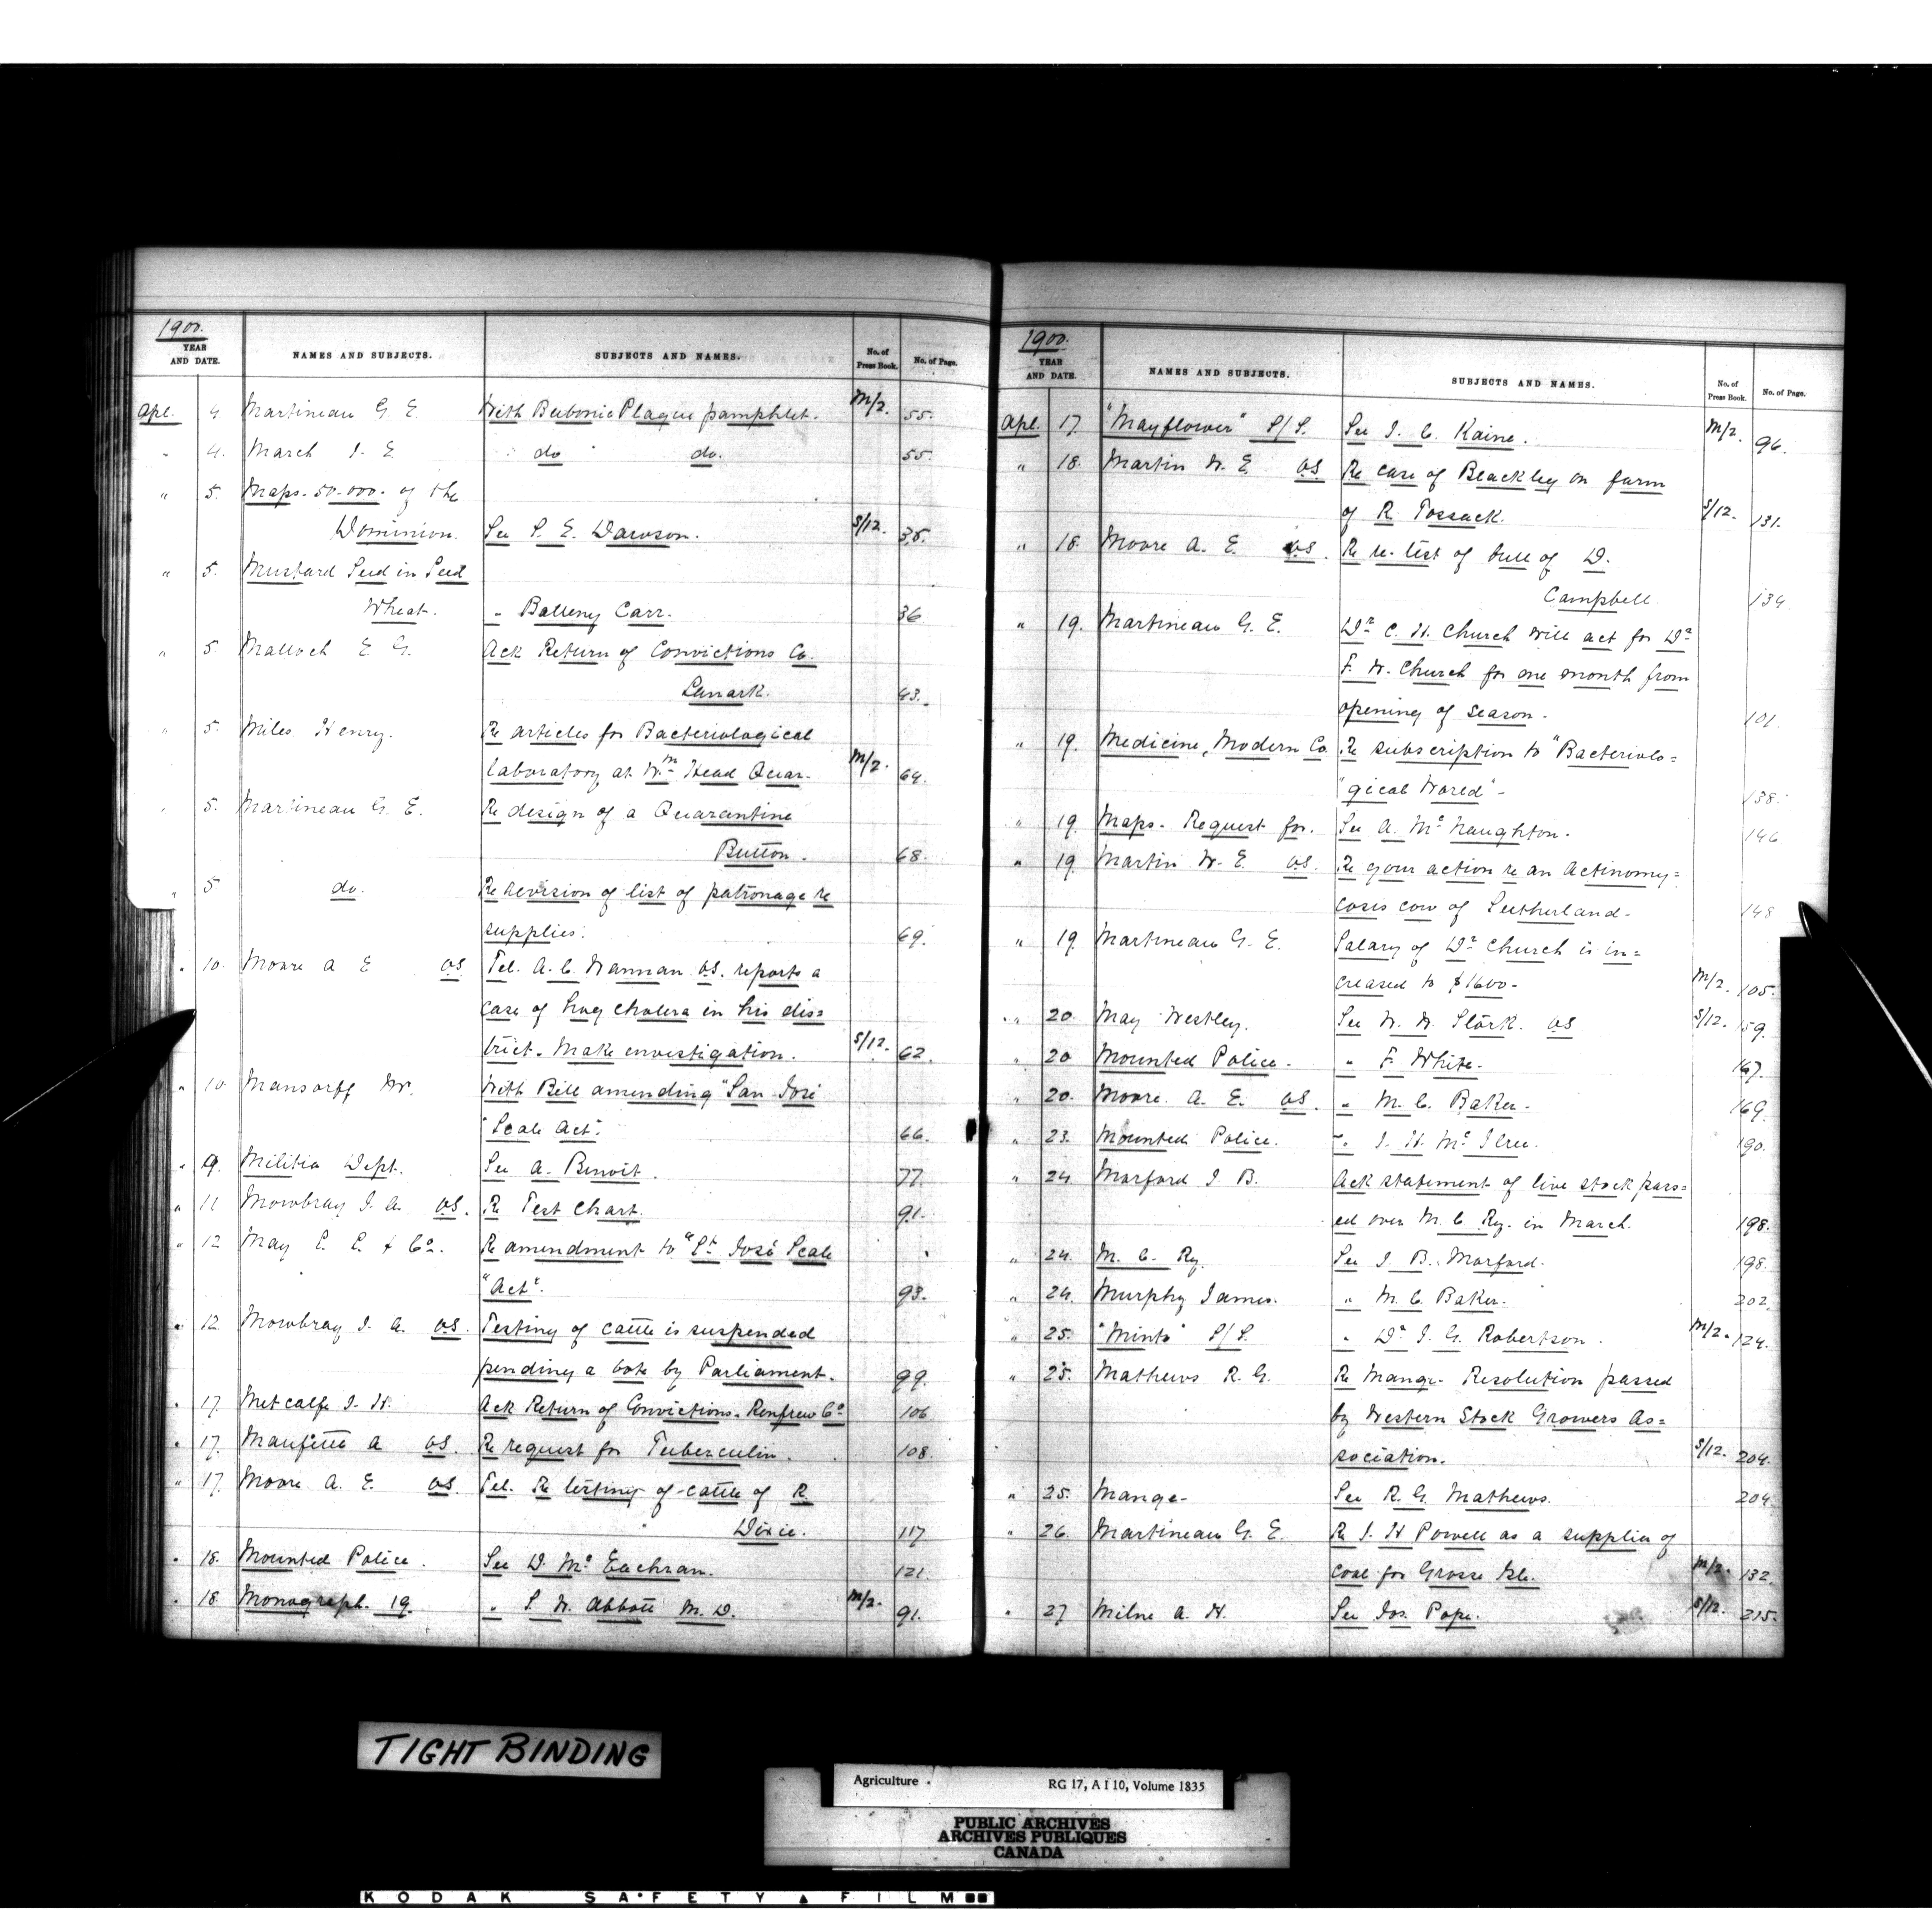 1900.
YEAR AND DATE. NAMES AND SUBJECTS. SUBJECTS AND NAMES. No. of Press Book. No. of Page.
Apl. 4 Martineau G. E. With Bubonic Plague pamphlet. M/2. 55.
" 4. March J. E. do do. 55.
" 5. Maps. 50-000. of the
Dominion. See S. E. Dawson. S/12. 35.
" 5. Mustard Seed in Seed
Wheat. " Balleny Carr. 36
" 5. Malloch E. G. Ack Return of Convictions Co.
Lanark. 43.
" 5. Miles Henry. Re articles for Bacteriological
laboratory at Wm Head Quar. M/2. 64.
" 5. Martineau G. E. Re design of a Quarantine
Button. 68.
" 5 do. Re revision of list of patronage re
supplies. 69.
" 10. Moore A E VS Tel. A. C. Wannan VS. reports a
case of hog cholera in his dis=
trict. Make investigation. S/12. 62.
" 10. Mansorff W. With Bill amending "San José
"Scale Act". 66.
" 9. Militia Dept. See A. Benoit. 77.
" 11 Mowbray J. A. VS. Re Test Chart. 91.
" 12 May S. E. & Co. Re amendment to "St José Scale
"Act". 93.
" 12. Mowbray J. A. VS. Testing of cattle is suspended
pending a vote by Parliament. 99.
" 17. Metcalfe J. H. Ack Return of Convictions. Renfrew Co 106
" 17. Manfette A VS. Re request for Tuberculin. 108.
" 17. Moore A. E. VS. Tel. Re testing of cattle of R.
Dixie. 117
" 18. Mounted Police. See D. Mc Eachran. 121.
" 18. Monograph. 19. " S. W. Abbott M. D. M/2. 91.
1900.
YEAR AND DATE. NAMES AND SUBJECTS. SUBJECTS AND NAMES. No. of Press Book. No. of Page.
Apl. 17. "Mayflower" S/S. See J. C. Kaine. M/2. 96.
" 18. Martin W. E. VS. Re case of Blackleg on farm
of R. Tossack. S/12. 131.
" 18. Moore A. E. VS. Re re-test of bull of D.
Campbell 134.
" 19. Martineau G. E. Dr C. H. Church will act for Dr
F. W. Church for one month from
opening of season. 101.
" 19. Medicine, Modern Co. Re subscription to "Bacteriolo=
"gical World" - 138.
" 19. Maps. Request for. See A. Mc Naughton. 146
" 19. Martin W. E. VS. Re your action re an Actinomy=
cosis cow of Sutherland - 148
" 19. Martineau G. E. Salary of Dr Church is in=
creased to $1600 - M/2. 105.
" 20. May Westley. See W. W. Stork. VS S/12. 159.
" 20 Mounted Police. " F. White. 167.
" 20. Moore. A. E. VS. " M. C. Baker. 169.
" 23. Mounted Police. " J. H. Mc Illree. 190.
" 24 Morford J. B. Ack statement of live stock pass=
ed over M. C. Ry. in March. 198.
" 24. M. C. Ry. See J. B. Morford. 198.
" 24. Murphy James. " M. C. Baker. 202.
" 25. "Minto" S/S. " Dr J. G. Robertson. M/2. 124.
" 25. Mathews R. G. Re Mange. Resolution passed
by Western Stock Growers As=
sociation. S/12. 204.
" 25. Mange - See R. G. Mathews. 204.
" 26. Martineau G. E. Re J. H Powell as a supplier of
coal for Grosse Isle. M/2. 132.
" 27 Milne A. H. See Jos. Pope. S/12. 215.
TIGHT BINDING
Agriculture. RG 17, A I 10, Volume 1835
PUBLIC ARCHIVES
ARCHIVES PUBLIQUES
CANADA
KODAK SAFETY ▲ FILM